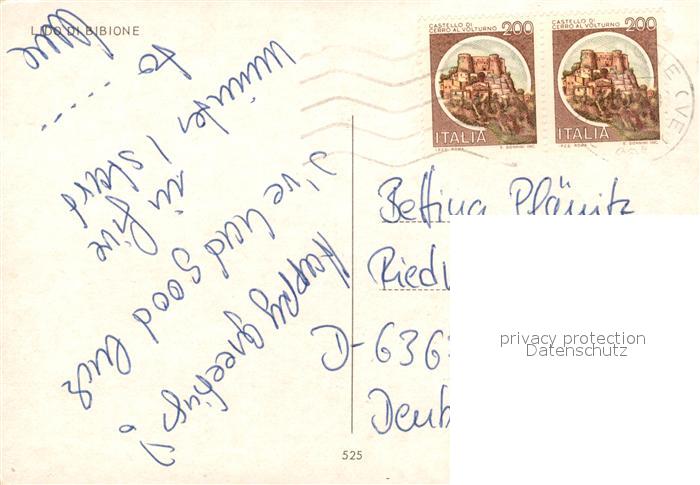 LIDO DI BIBIONE
CASTELLO DI
CERRO AL VOLTURNO 200
ITALIA
CASTELLO DI
CERRO AL VOLTURNO 200
ITALIA
Happy greetings!
I've had good luck
in five
minutes I stand
to
Bettina Plänitz
Riedl
D-636
Deut
privacy protection
Datenschutz
525